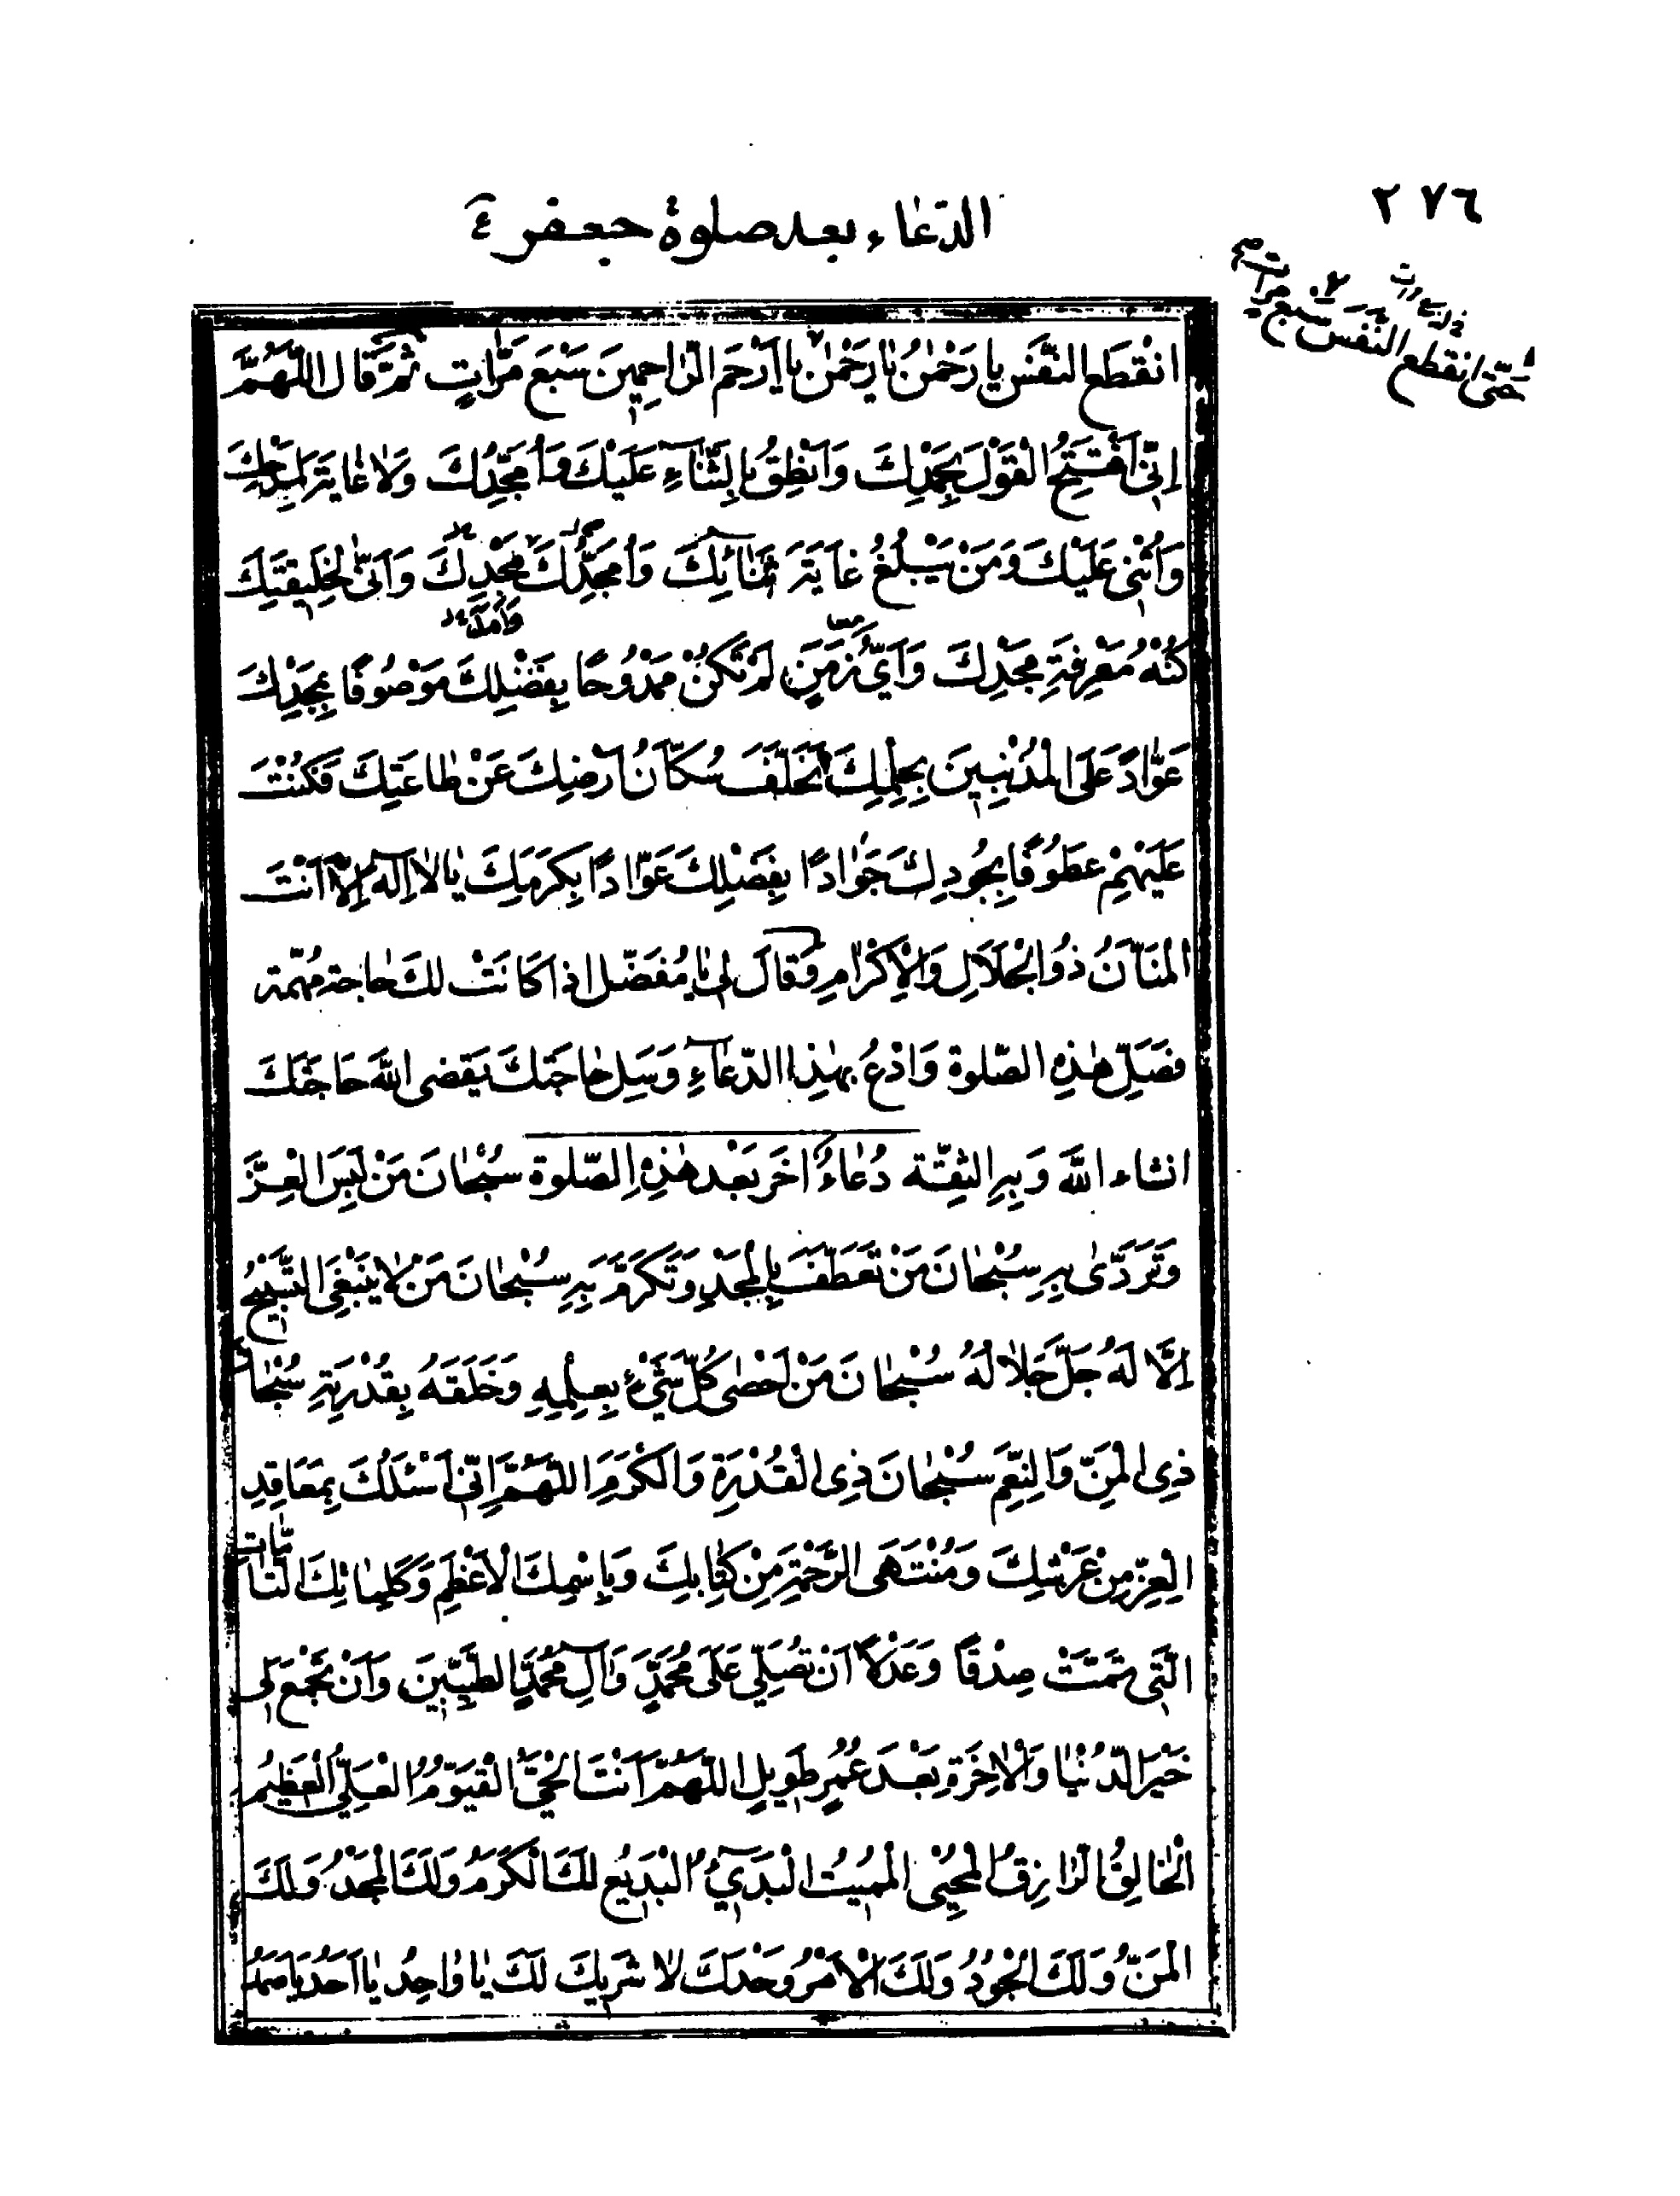 ٢٧٦
الدّعاء بعد صلوة جعفر ع
حتّى انقطع النّفس سبع مرات
انْقَطَع النَّفَس يا رَحْمٰنُ يٰا رَحْمٰنُ يٰا اَرْحَمَ الرّٰاحِمِينَ سَبْعَ مَرّٰاتٍ ثُمَّ قال اللّهُمَّ
اِنّى اَفْتَتِحُ الْقَوْلَ بِحَمْدِكَ وَاَنْطِقُ بِالثَّنٰآءِ عَلَيْكَ وَاُمَجِّدُكَ وَلٰا غٰايَةَ لِمَدْحِكَ
وَاُثْنى عَلَيْكَ وَمَنْ يَبْلُغُ غايَةَ ثَنٰآئِكَ وَاُمَجِّدُكَ مَجْدِكَ وَاَنّٰى لِخَليقَتِكَ
وَاَمَدَ
كُنْهُ مَعْرِفَةِ مَجْدِكَ وَاَىُّ زَمَنٍ لَمْ تَكُنْ مَمْدُوحًا بِفَضْلِكَ مَوْصُوفًا بِمَجْدِكَ
عَوّٰادًا عَلَى الْمُذْنِبينَ بِحِلْمِكَ تَخَلَّفَ سُكّٰانُ اَرْضِكَ عَنْ طٰاعَتِكَ فَكُنْتَ
عَلَيْهِمْ عَطُوفًا بِجُودِكَ جَوٰادًا بِفَضْلِكَ عَوّٰادًا بِكَرَمِكَ يٰا لٰا اِلٰهَ اِلّٰا اَنْتَ
الْمَنّٰانُ ذُو الْجَلَالِ وَالْاِكْرٰامِ وَقالَ لى يٰا مُفَضّل اذا كٰانَتْ لكَ حٰاجة مُهمّة
فصَلِّ هٰذِهِ الصّلوة وَادْعُ بهٰذا الدّعٰآءِ وَسَلْ حٰاجَتكَ يَقضى اللّٰه حَاجَتَكَ
انشاء اللّٰه وَبِهِ الثِقَة دُعٰاءٌ اٰخَر بَعْد هٰذِهِ الصّلوة سُبْحٰانَ مَنْ لَبِسَ الْعِزَّ
وَتَرَدّٰى بِهِ سُبْحٰانَ مَنْ تَعَطَّفَ بِالْمَجْدِ وَتَكَرَّمَ بِهِ سُبْحٰانَ مَنْ لٰا يَنْبَغِى التَّسْبيحُ
اِلّٰا لَهُ جَلَّ جَلٰالُهُ سُبْحٰانَ مَنْ اَحْصٰى كُلَّ شَيْءٍ بِعِلْمِهِ وَخَلَقَهُ بِقُدْرَتِهِ سُبْحٰانَ
ذِى الْمَنِّ وَالنِّعَمِ سُبْحٰانَ ذِى الْقُدْرَةِ وَالْكَرَمِ اللّهُمَّ اِنّى اَسْئَلُكَ بِمَعَاقِدِ
الْعِزِّ مِنْ عَرْشِكَ وَمُنْتَهَى الرَّحْمَةِ مِنْ كِتٰابِكَ وَبِاسْمِكَ الْاَعْظَمِ وَكَلِمٰاتِكَ التّٰامّٰاتِ
الَّتى تَمَّتْ صِدْقًا وَعَدْلًا اَنْ تُصَلِّيَ عَلىٰ مُحَمَّدٍ وَاٰلِ مُحَمَّدٍ الطَّيِّبينَ وَاَنْ تَجْمَعَ لى
خَيْرَ الدُّنْيٰا وَالْاٰخِرَةِ بَعْدَ عُمُرٍ طَويلٍ اللّهُمَّ اَنْتَ الْحَيُّ الْقَيّومُ الْعَلِيُّ الْعَظيمُ
الْخٰالِقُ الرّٰازِقُ الْمُحْيى الْمُميتُ الْبَديٓءُ الْبَديعُ لَكَ الْكَرَمُ وَلَكَ الْمَجْدُ وَلَكَ
الْمَنُّ وَلَكَ الْجُودُ وَلَكَ الْاَمْرُ وَحْدَكَ لٰا شَريكَ لَكَ يٰا وٰاحِدُ يٰا اَحَدُ يٰا صَمَدُ